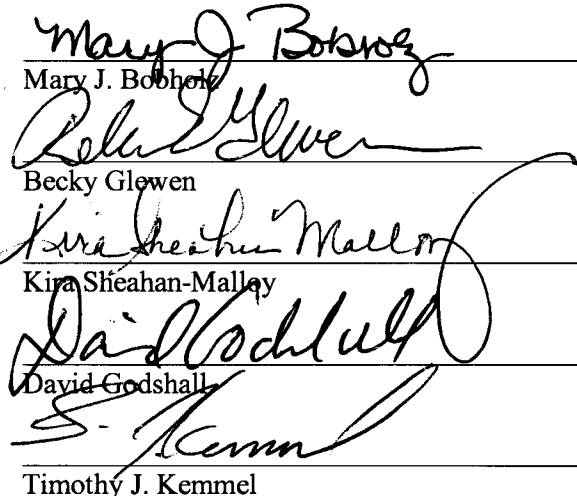 Mary J Bobholz
Mary J. Bobholz
Glewen
Becky Glewen
Kira Sheahan Malloy
Kira Sheahan-Malloy
David Godshall
David Godshall
Kemmel
Timothy J. Kemmel